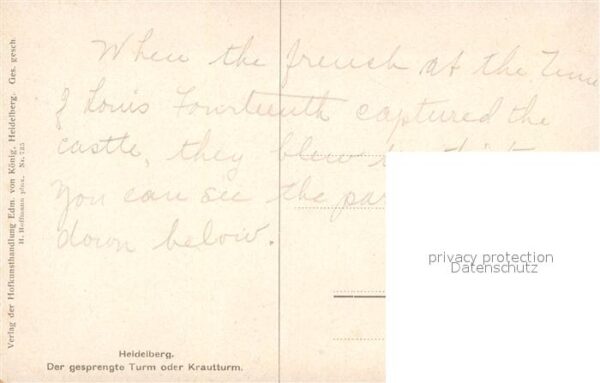 When the french at the Time
of Louis Fourteenth captured the
castle, they blew
you can see the
down below.
Heidelberg.
Der gesprengte Turm oder Krautturm.
Verlag der Hofkunsthandlung Edm. von König, Heidelberg. Ges. gesch.
H. Hoffmann pinx. Nr. 725
privacy protection
Datenschutz